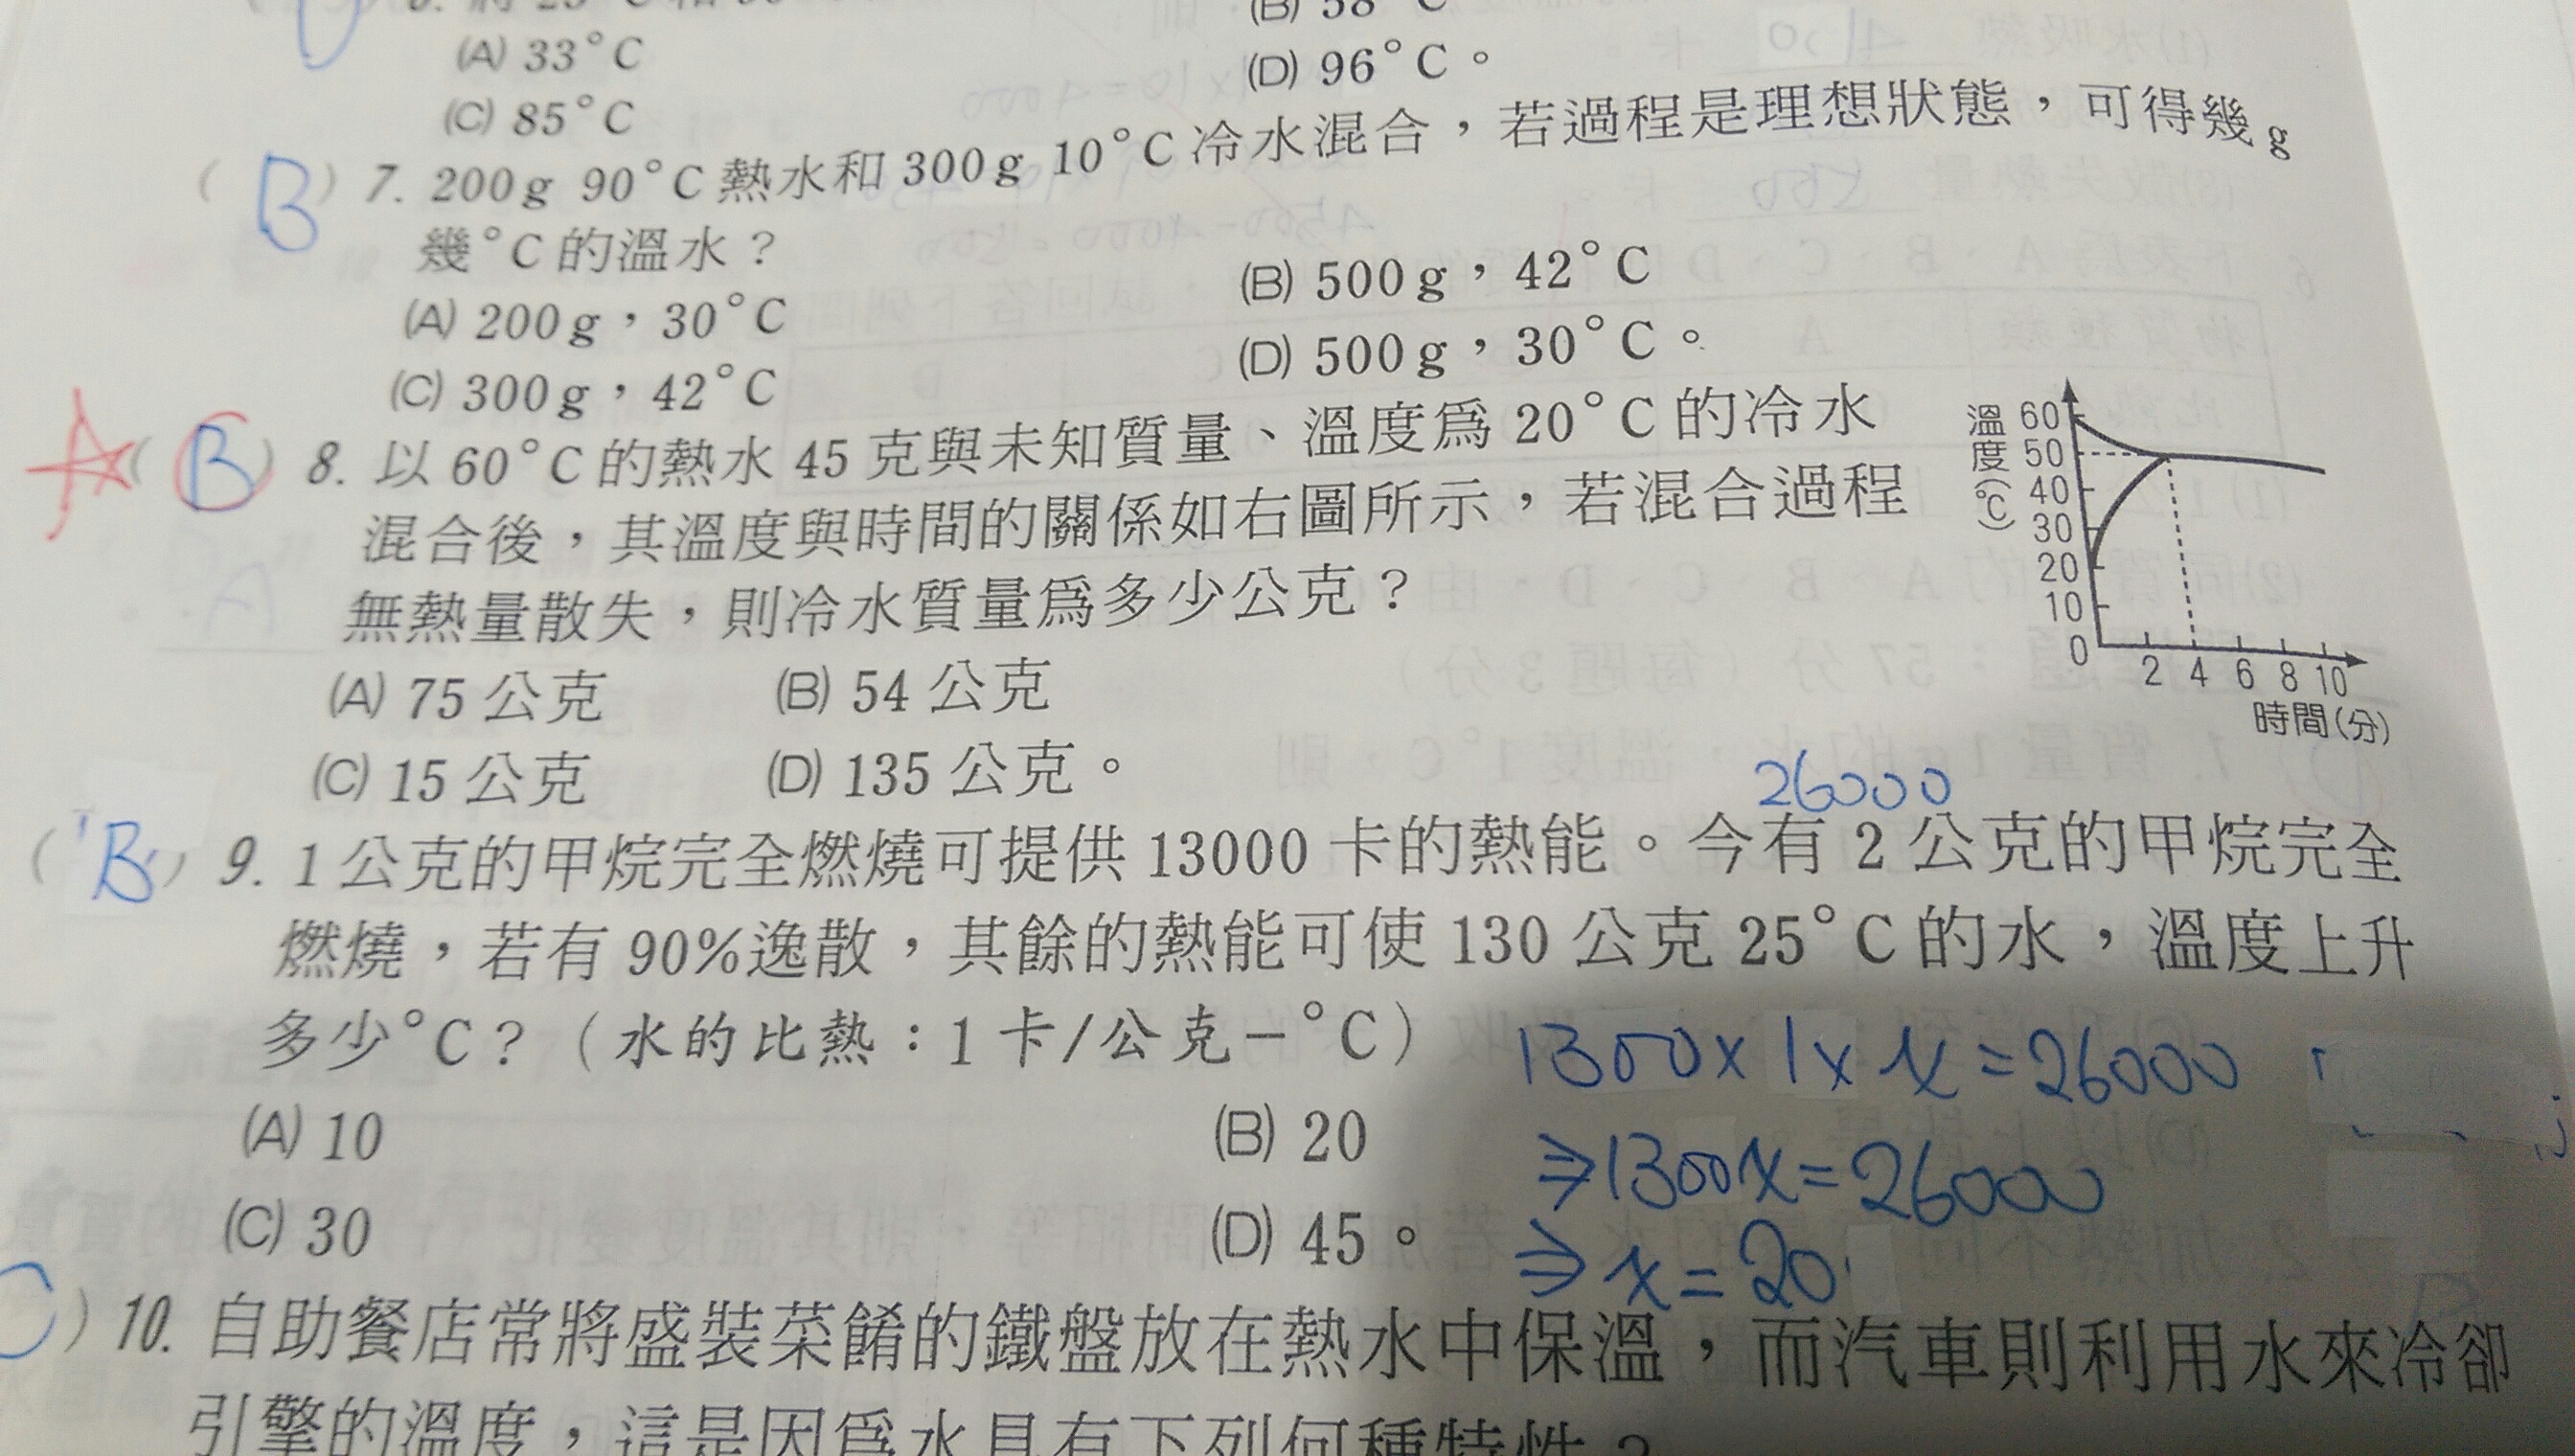 (A) 33°C
(B) 58°C
(C) 85°C
(D) 96°C。
( B ) 7. 200g 90°C熱水和300g 10°C冷水混合，若過程是理想狀態，可得幾g
幾°C的溫水？
(A) 200g，30°C
(B) 500g，42°C
(C) 300g，42°C
(D) 500g，30°C。
( B ) 8. 以60°C的熱水45克與未知質量、溫度爲20°C的冷水
混合後，其溫度與時間的關係如右圖所示，若混合過程
無熱量散失，則冷水質量爲多少公克？
(A) 75公克 (B) 54公克
(C) 15公克 (D) 135公克。
溫度(°C)
60
50
40
30
20
10
0
2 4 6 8 10
時間(分)
26000
( B ) 9. 1公克的甲烷完全燃燒可提供13000卡的熱能。今有2公克的甲烷完全
燃燒，若有90%逸散，其餘的熱能可使130公克25°C的水，溫度上升
多少°C？（水的比熱：1卡/公克－°C）
1300×1×x=26000
(A) 10
(B) 20
⇒1300x=26000
(C) 30
(D) 45。
⇒x=20
) 10. 自助餐店常將盛裝菜餚的鐵盤放在熱水中保溫，而汽車則利用水來冷卻
引擎的溫度，這是因爲水具有下列何種特性？